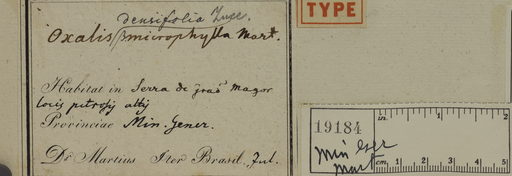 densifolia Zucc.
Oxalis β microphylla Mart.
Habitat in Serra de Grão magor
locis petrosis altis
Provinciae Min. Gener.
Dr. Martius Iter Brasil. Jul.
TYPE
in. 1 2
19184
Min
Mart
cm. 1 2 3 4 5